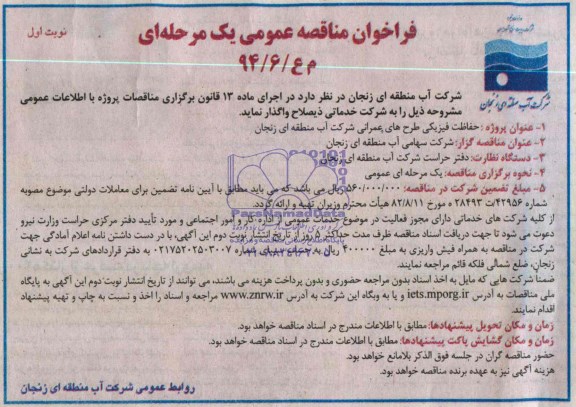 فراخوان مناقصه عمومی یک مرحله‌ای
نوبت اول
م ع/۹۴/۶
شرکت آب منطقه ای زنجان
شرکت آب منطقه ای زنجان در نظر دارد در اجرای ماده ۱۳ قانون برگزاری مناقصات پروژه با اطلاعات عمومی
مشروحه ذیل را به شرکت خدماتی ذیصلاح واگذار نماید.
۱- عنوان پروژه: حفاظت فیزیکی طرح های عمرانی شرکت آب منطقه ای زنجان
۲- عنوان مناقصه گزار: شرکت سهامی آب منطقه ای زنجان
۳- دستگاه نظارت: دفتر حراست شرکت آب منطقه ای زنجان
۴- نحوه برگزاری مناقصه: یک مرحله ای عمومی
۵- مبلغ تضمین شرکت در مناقصه: ۵۶۰/۰۰۰/۰۰۰ ریال می باشد که می باید مطابق با آیین نامه تضمین برای معاملات دولتی موضوع مصوبه
شماره ۴۲۹۵۶/ت ۲۸۴۹۳ ه مورخ ۸۲/۸/۱۱ هیأت محترم وزیران تهیه و ارائه گردد.
از کلیه شرکت های خدماتی دارای مجوز فعالیت در موضوع خدمات عمومی از اداره کار و امور اجتماعی و مورد تأیید دفتر مرکزی حراست وزارت نیرو
دعوت می شود تا جهت دریافت اسناد مناقصه ظرف مدت حداکثر ۵ روز از تاریخ انتشار نوبت دوم این آگهی، با در دست داشتن نامه اعلام آمادگی جهت
شرکت در مناقصه به همراه فیش واریزی به مبلغ ۴۰۰۰۰۰ ریال به حساب سیبای شماره ۰۲۱۷۵۲۰۲۵۰۳۰۰۷ به دفتر قراردادهای شرکت به نشانی
زنجان، ضلع شمالی فلکه قائم مراجعه نمایند.
ضمنا شرکت هایی که مایل به اخذ اسناد بدون مراجعه حضوری و بدون پرداخت هزینه می باشند، می توانند از تاریخ انتشار نوبت دوم این آگهی به پایگاه
ملی مناقصات به آدرس iets.mporg.ir و یا به وبگاه این شرکت به آدرس www.znrw.ir مراجعه و اسناد را اخذ و نسبت به چاپ و تهیه پیشنهاد
اقدام نمایند.
زمان و مکان تحویل پیشنهادها: مطابق با اطلاعات مندرج در اسناد مناقصه خواهد بود.
زمان و مکان گشایش پاکت پیشنهادها: مطابق با اطلاعات مندرج در اسناد مناقصه خواهد بود.
حضور مناقصه گران در جلسه فوق الذکر بلامانع خواهد بود.
هزینه آگهی نیز به عهده برنده مناقصه خواهد بود.
روابط عمومی شرکت آب منطقه ای زنجان
ParsNamadData